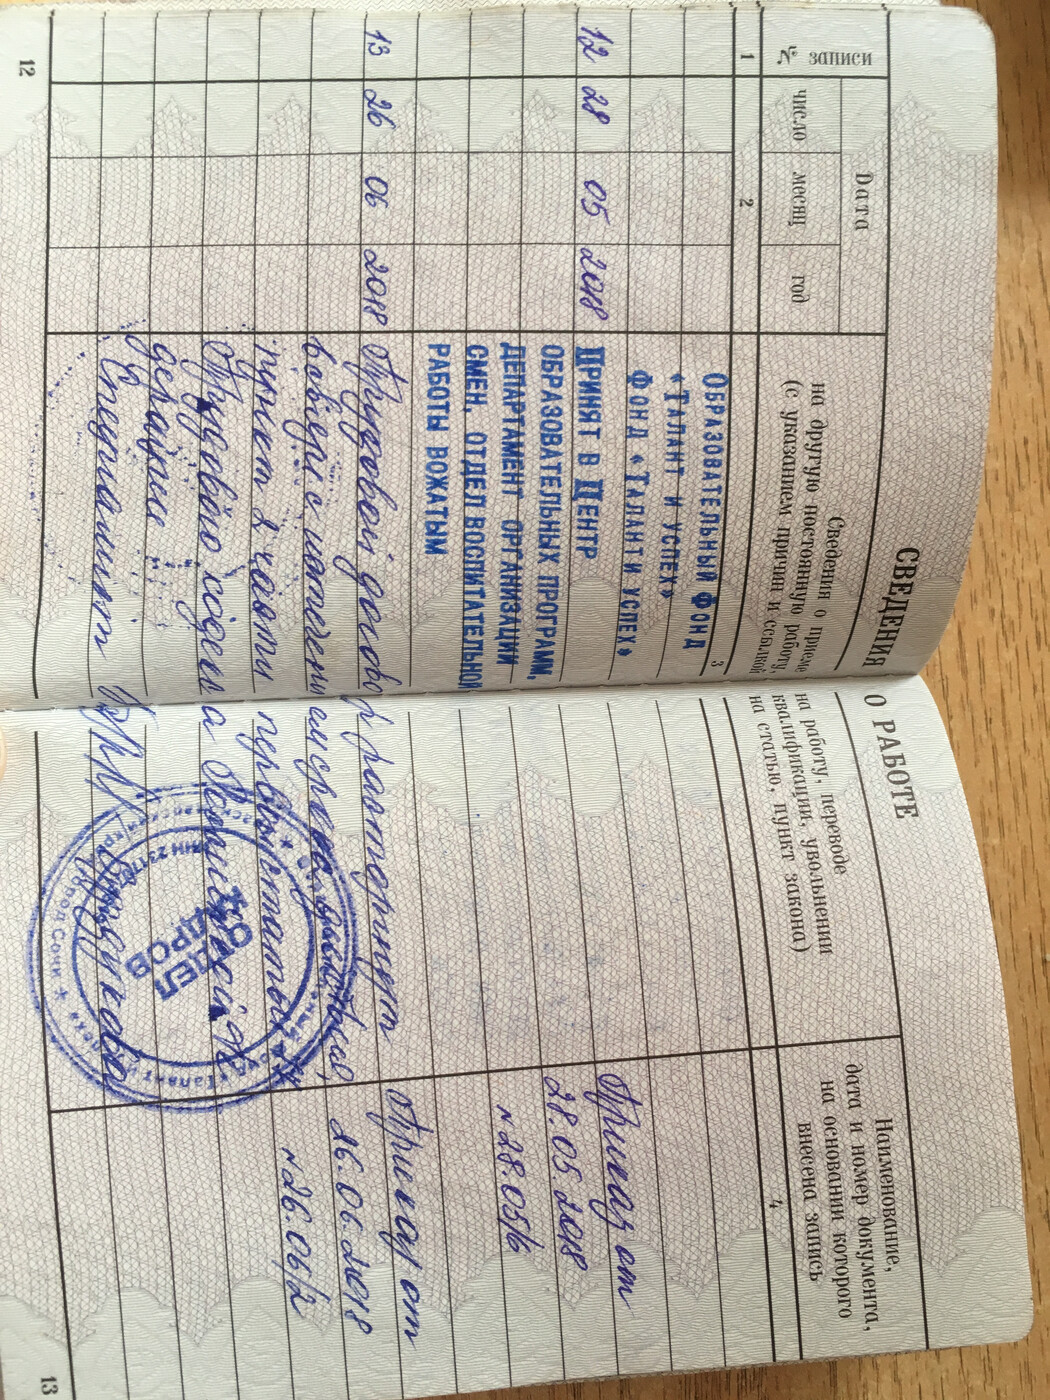 СВЕДЕНИЯ О РАБОТЕ
№ записи
Дата
число
месяц
год
Сведения о приеме на работу, переводе
на другую постоянную работу, квалификации, увольнении
(с указанием причин и ссылкой на статью, пункт закона)
Наименование,
дата и номер документа,
на основании которого
внесена запись
1
2
3
4
ОБРАЗОВАТЕЛЬНЫЙ ФОНД
«ТАЛАНТ И УСПЕХ»
ФОНД «ТАЛАНТ И УСПЕХ»
12 28 05 2018 ПРИНЯТ В ЦЕНТР Приказ от
ОБРАЗОВАТЕЛЬНЫХ ПРОГРАММ, 28.05.2018
ДЕПАРТАМЕНТ ОРГАНИЗАЦИИ №28.05/6
СМЕН, ОТДЕЛ ВОСПИТАТЕЛЬНОЙ
РАБОТЫ ВОЖАТЫМ
13 26 06 2018 Трудовой договор расторгнут Приказ от
в связи с истечением срока действия, 26.06.2018
пункт 2 части первой статьи №26.06/2
Трудового кодекса Российской Фе
дерации
Специалист
ОТДЕЛ
КАДРОВ
город Сочи
12
13